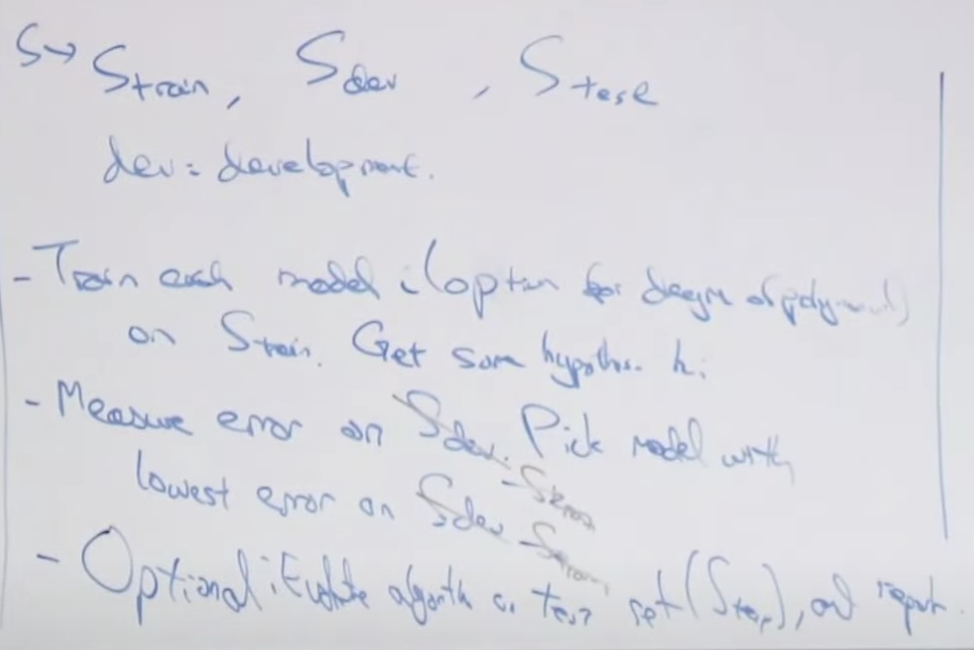 S → S train, S dev, S test
dev = development.
- Train each model i (option for degree of polynomial)
on S train. Get some hypothesis hi
- Measure error on S dev. Pick model with
- S train
lowest error on S dev
- S train
- Optional: Evaluate algorithm on test set (S test), and report.